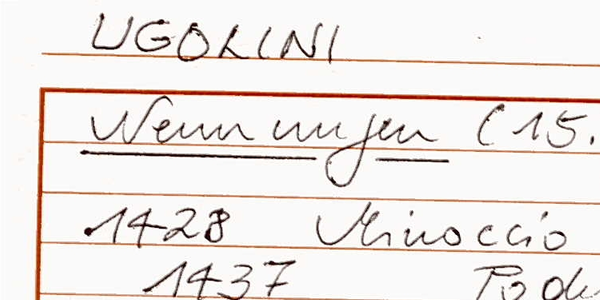 UGOLINI
Nennungen (15.
1428 Minoccio
1437